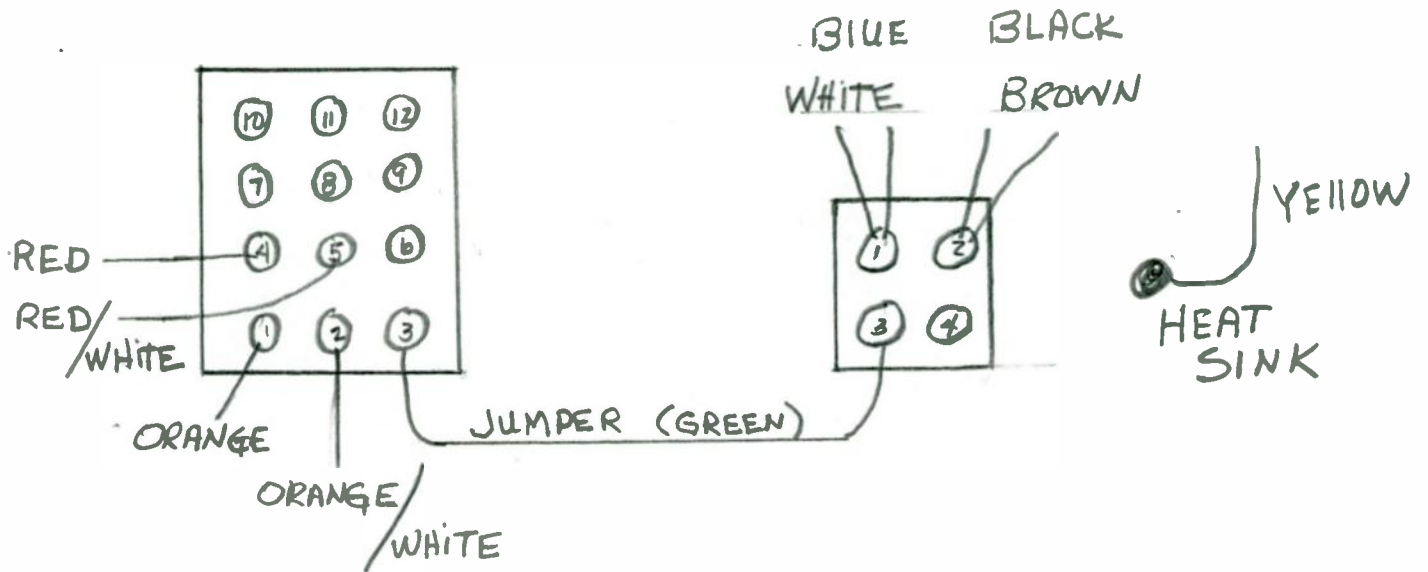 BLUE BLACK
WHITE BROWN
10 11 12
7 8 9
4 5 6
1 2 3
RED
RED/
WHITE
ORANGE
ORANGE/
WHITE
JUMPER (GREEN)
1 2
3 4
YELLOW
HEAT
SINK